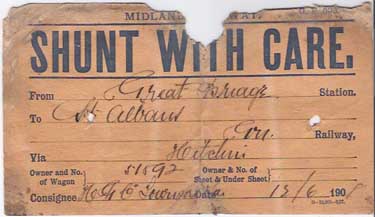 MIDLAND RAILWAY.
SHUNT WITH CARE.
From Great Bridge Station.
To St Albans
G.N. Railway,
Via Hitchin
Owner and No. of Wagon } 51592 Owner & No. of Sheet & Under Sheet }
Consignee 12/6/190